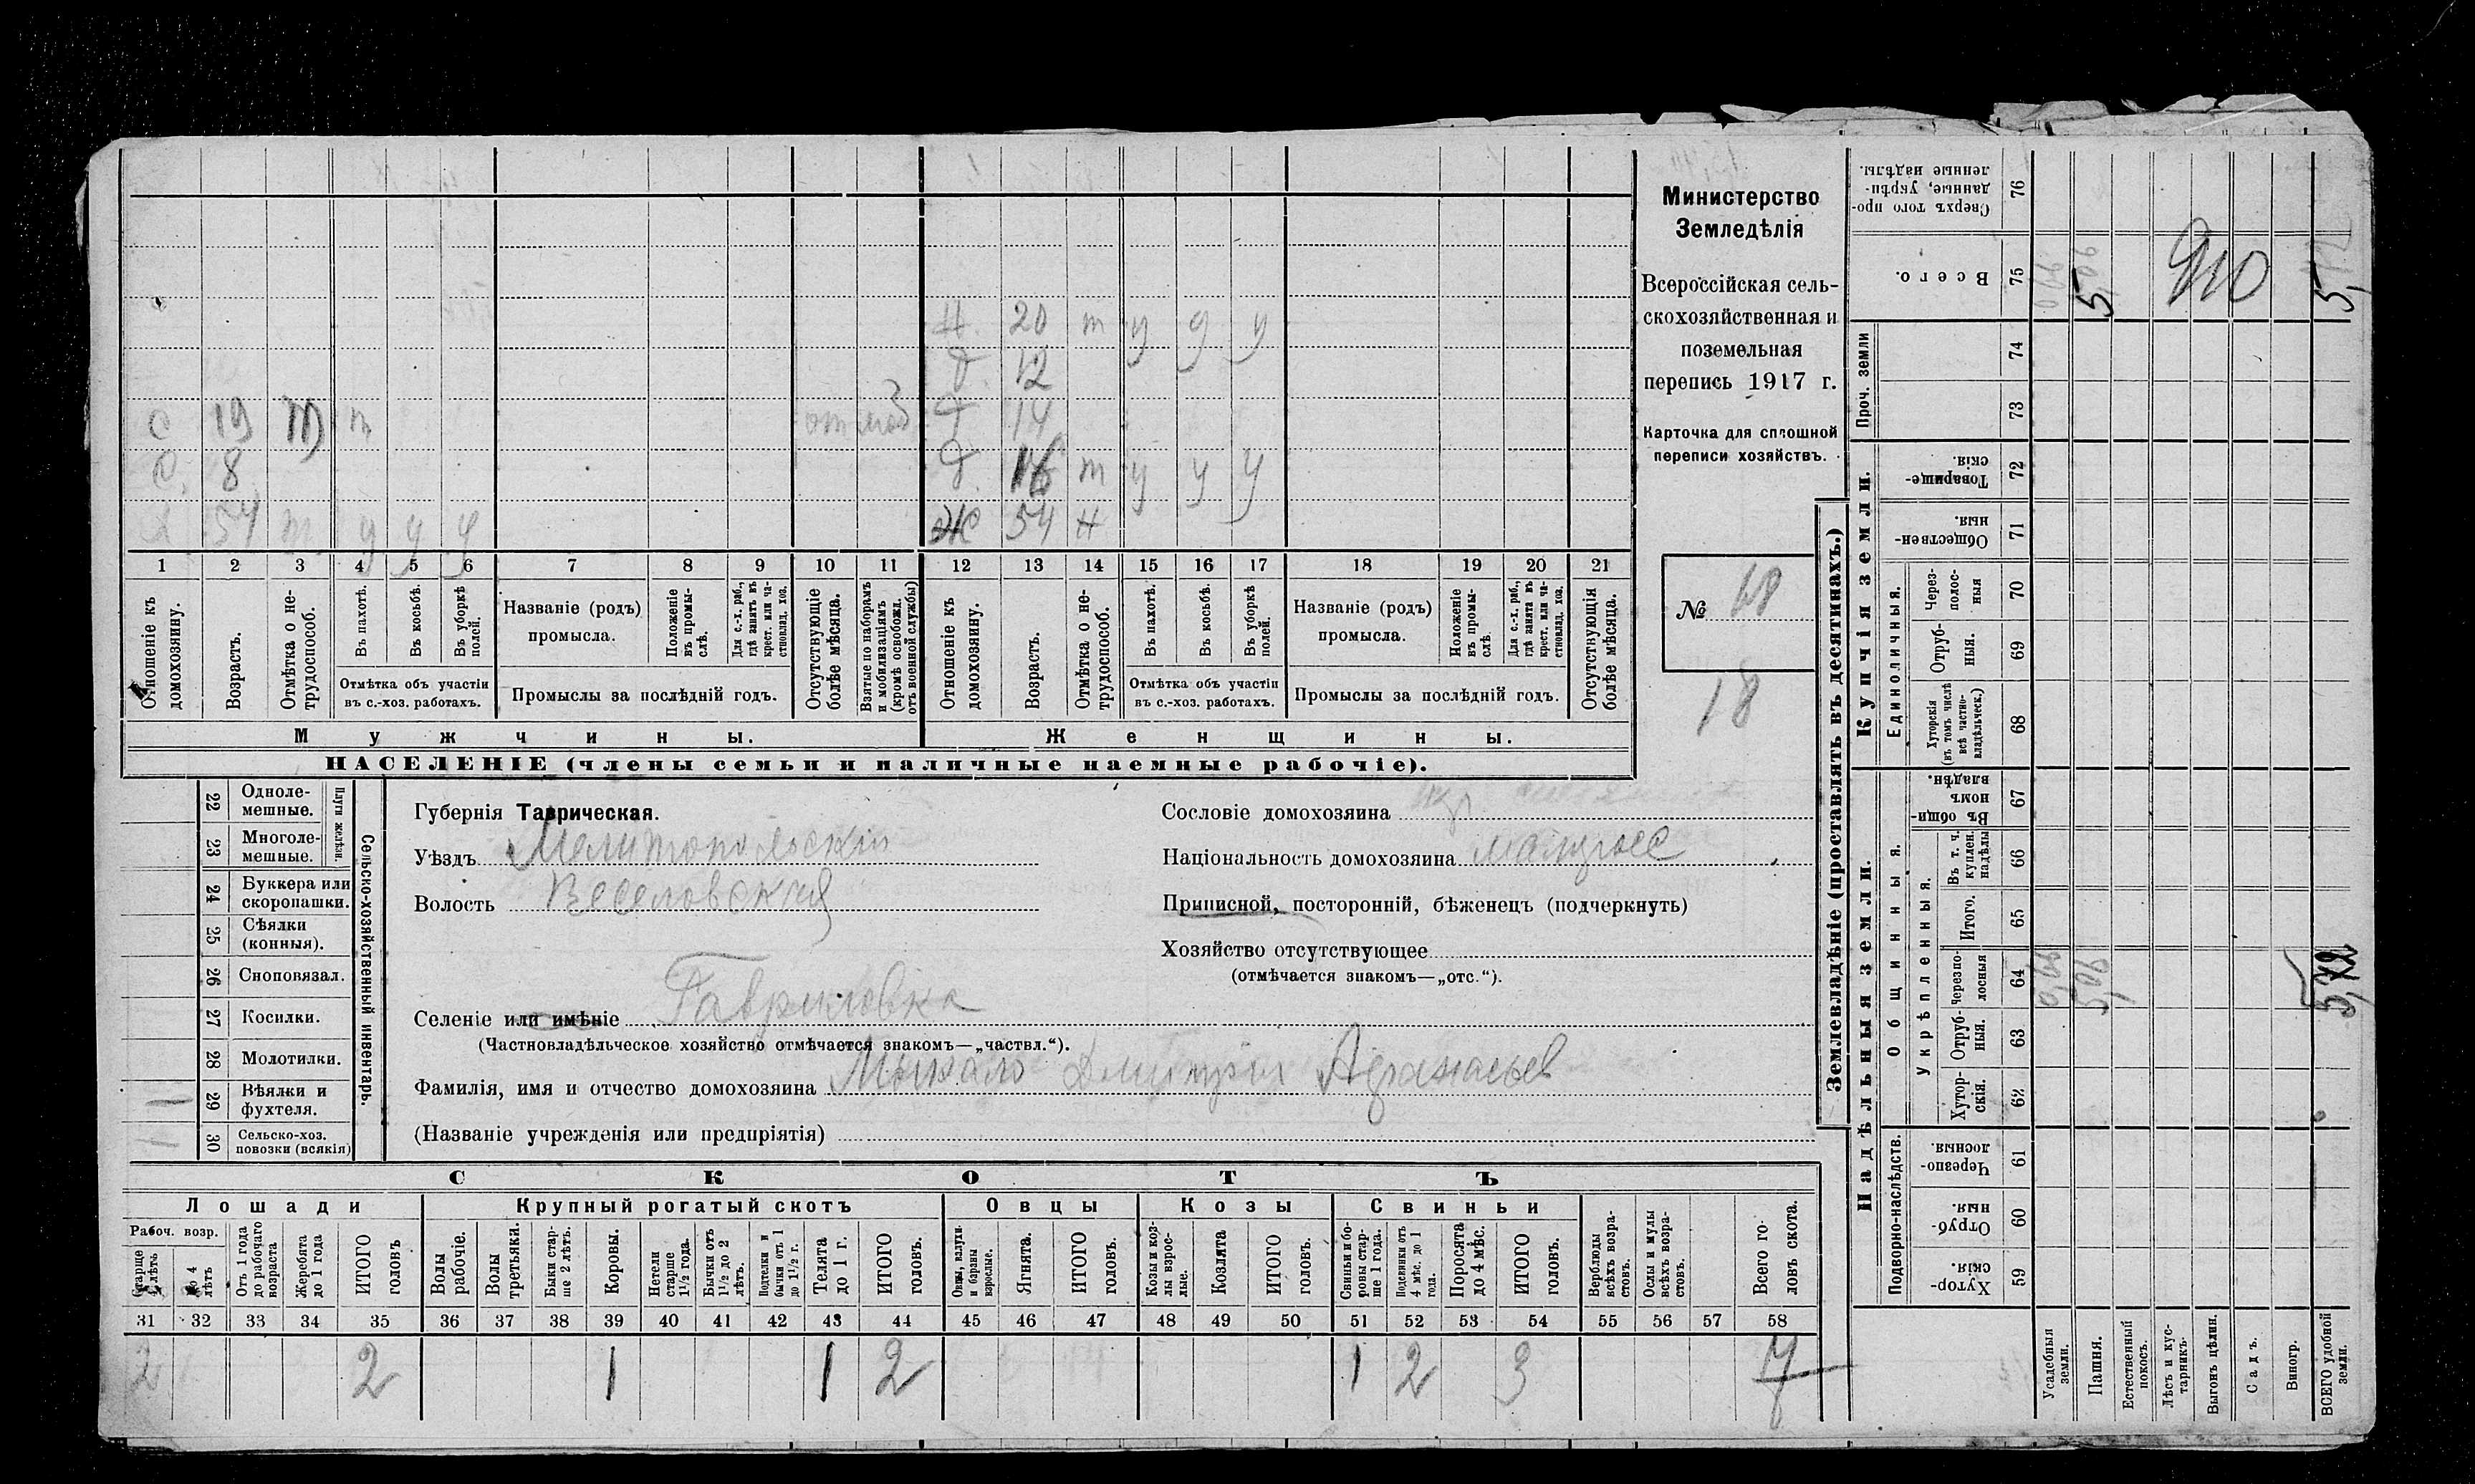 Министерство
Земледѣлія
Всероссійская сель-
скохозяйственная и
поземельная
перепись 1917 г.
Карточка для сплошной
переписи хозяйствъ.
№ 18
18
Н. 20 т у у у
Д. 12
С 19 т т отм моб Д 14
С. 8 Д. 16 т у у у
Х 54 т у у у Ж 54 н
1 2 3 4 5 6 7 8 9 10 11 12 13 14 15 16 17 18 19 20 21
Отношеніе къ домохозяину.
Возрастъ.
Отмѣтка о не-трудоспособ.
Въ пахотѣ.
Въ косьбѣ.
Въ уборкѣ полей.
Отмѣтка объ участіи
въ с.-хоз. работахъ.
Названіе (родъ)
промысла.
Положеніе въ промы-слѣ.
Для с.-х. раб., гдѣ занятъ въ крест. или ча-стновлад. хоз.
Промыслы за послѣдній годъ.
Отсутствующіе болѣе мѣсяца.
Взятые по наборамъ и мобилизаціямъ (кромѣ освобожд. отъ военной службы)
Отношеніе къ домохозяину.
Возрастъ.
Отмѣтка о не-трудоспособ.
Въ пахотѣ.
Въ косьбѣ.
Въ уборкѣ полей.
Отмѣтка объ участіи
въ с.-хоз. работахъ.
Названіе (родъ)
промысла.
Положеніе въ промы-слѣ.
Для с.-х. раб., гдѣ занята въ крест. или ча-стновлад. хоз.
Промыслы за послѣдній годъ.
Отсутствующія болѣе мѣсяца.
Мужчины. Женщины.
НАСЕЛЕНІЕ (члены семьи и наличные наемные рабочіе).
22 Одноле-мешные.
23 Многоле-мешные.
Плуги желѣзн.
24 Буккера или скоропашки.
25 Сѣялки (конныя).
26 Сноповязал.
27 Косилки.
28 Молотилки.
1 29 Вѣялки и фухтеля.
1 30 Сельско-хоз. повозки (всякія)
Сельско-хозяйственный инвентарь.
Губернія Таврическая.
Уѣздъ Мелитопольскій
Волость Веселовская
Сословіе домохозяина кр.
Національность домохозяина малоросс
Приписной, посторонній, бѣженецъ (подчеркнуть)
Хозяйство отсутствующее
(отмѣчается знакомъ—„отс.“).
Селеніе или имѣніе Гавриловка
(Частновладѣльческое хозяйство отмѣчается знакомъ—„частвл.“).
Фамилія, имя и отчество домохозяина Дмитрій Афанасьев
(Названіе учрежденія или предпріятія)
СКОТЪ
Лошади Крупный рогатый скотъ Овцы Козы Свиньи
Рабоч. возр.
Старше 4 лѣтъ
До 4 лѣтъ
Отъ 1 года до рабочаго возраста
Жеребята до 1 года
ИТОГО головъ
Волы рабочіе.
Волы третьяки.
Быки стар-ше 2 лѣтъ.
Коровы.
Нетели старше 1½ года.
Бычки отъ 1½ до 2 лѣтъ.
Подтелки и бычки отъ 1 до 1½ г.
Телята до 1 г.
ИТОГО головъ.
Овцы, валухи и бараны взрослые.
Ягнята.
ИТОГО головъ.
Козы и коз-лы взрос-лые.
Козлята
ИТОГО головъ.
Свиньи и бо-ровы стар-ше 1 года.
Подсвинки отъ 4 мѣс. до 1 года.
Поросята до 4 мѣс.
ИТОГО головъ.
Верблюды всѣхъ возра-стовъ.
Ослы и мулы всѣхъ возра-стовъ.
Всего го-ловъ скота.
31 32 33 34 35 36 37 38 39 40 41 42 43 44 45 46 47 48 49 50 51 52 53 54 55 56 57 58
2 2 1 1 2 1 2 3 7
Землевладѣніе (проставлять въ десятинахъ.)
Надѣльныя земли. Купчія земли. Проч. земли
Подворно-наслѣдств. Общинныя. Единоличныя.
Укрѣпленныя.
Хутор-скія. 59
Отруб-ныя. 60
Черезпо-лосныя. 61
Хутор-скія. 62
Отруб-ныя. 63
Черезпо-лосныя 64
Итого. 65
Въ т. ч. куплен. надѣлы 66
Въ общин-номъ владѣн. 67
Хуторскія (въ томъ числѣ всѣ частно-владѣльческ.) 68
Отруб-ныя. 69
Через-полос-ныя 70
Обществен-ныя. 71
Товарище-скія. 72
73
74
Всего. 75
Сверхъ того про-данные, укрѣп-ленные надѣлы. 76
Усадебныя земли.
Пашня.
Естественный покосъ.
Лѣсъ и кус-тарникъ.
Выгонъ цѣлин.
Садъ.
Виногр.
ВСЕГО удобной земли.
5,06
5,72